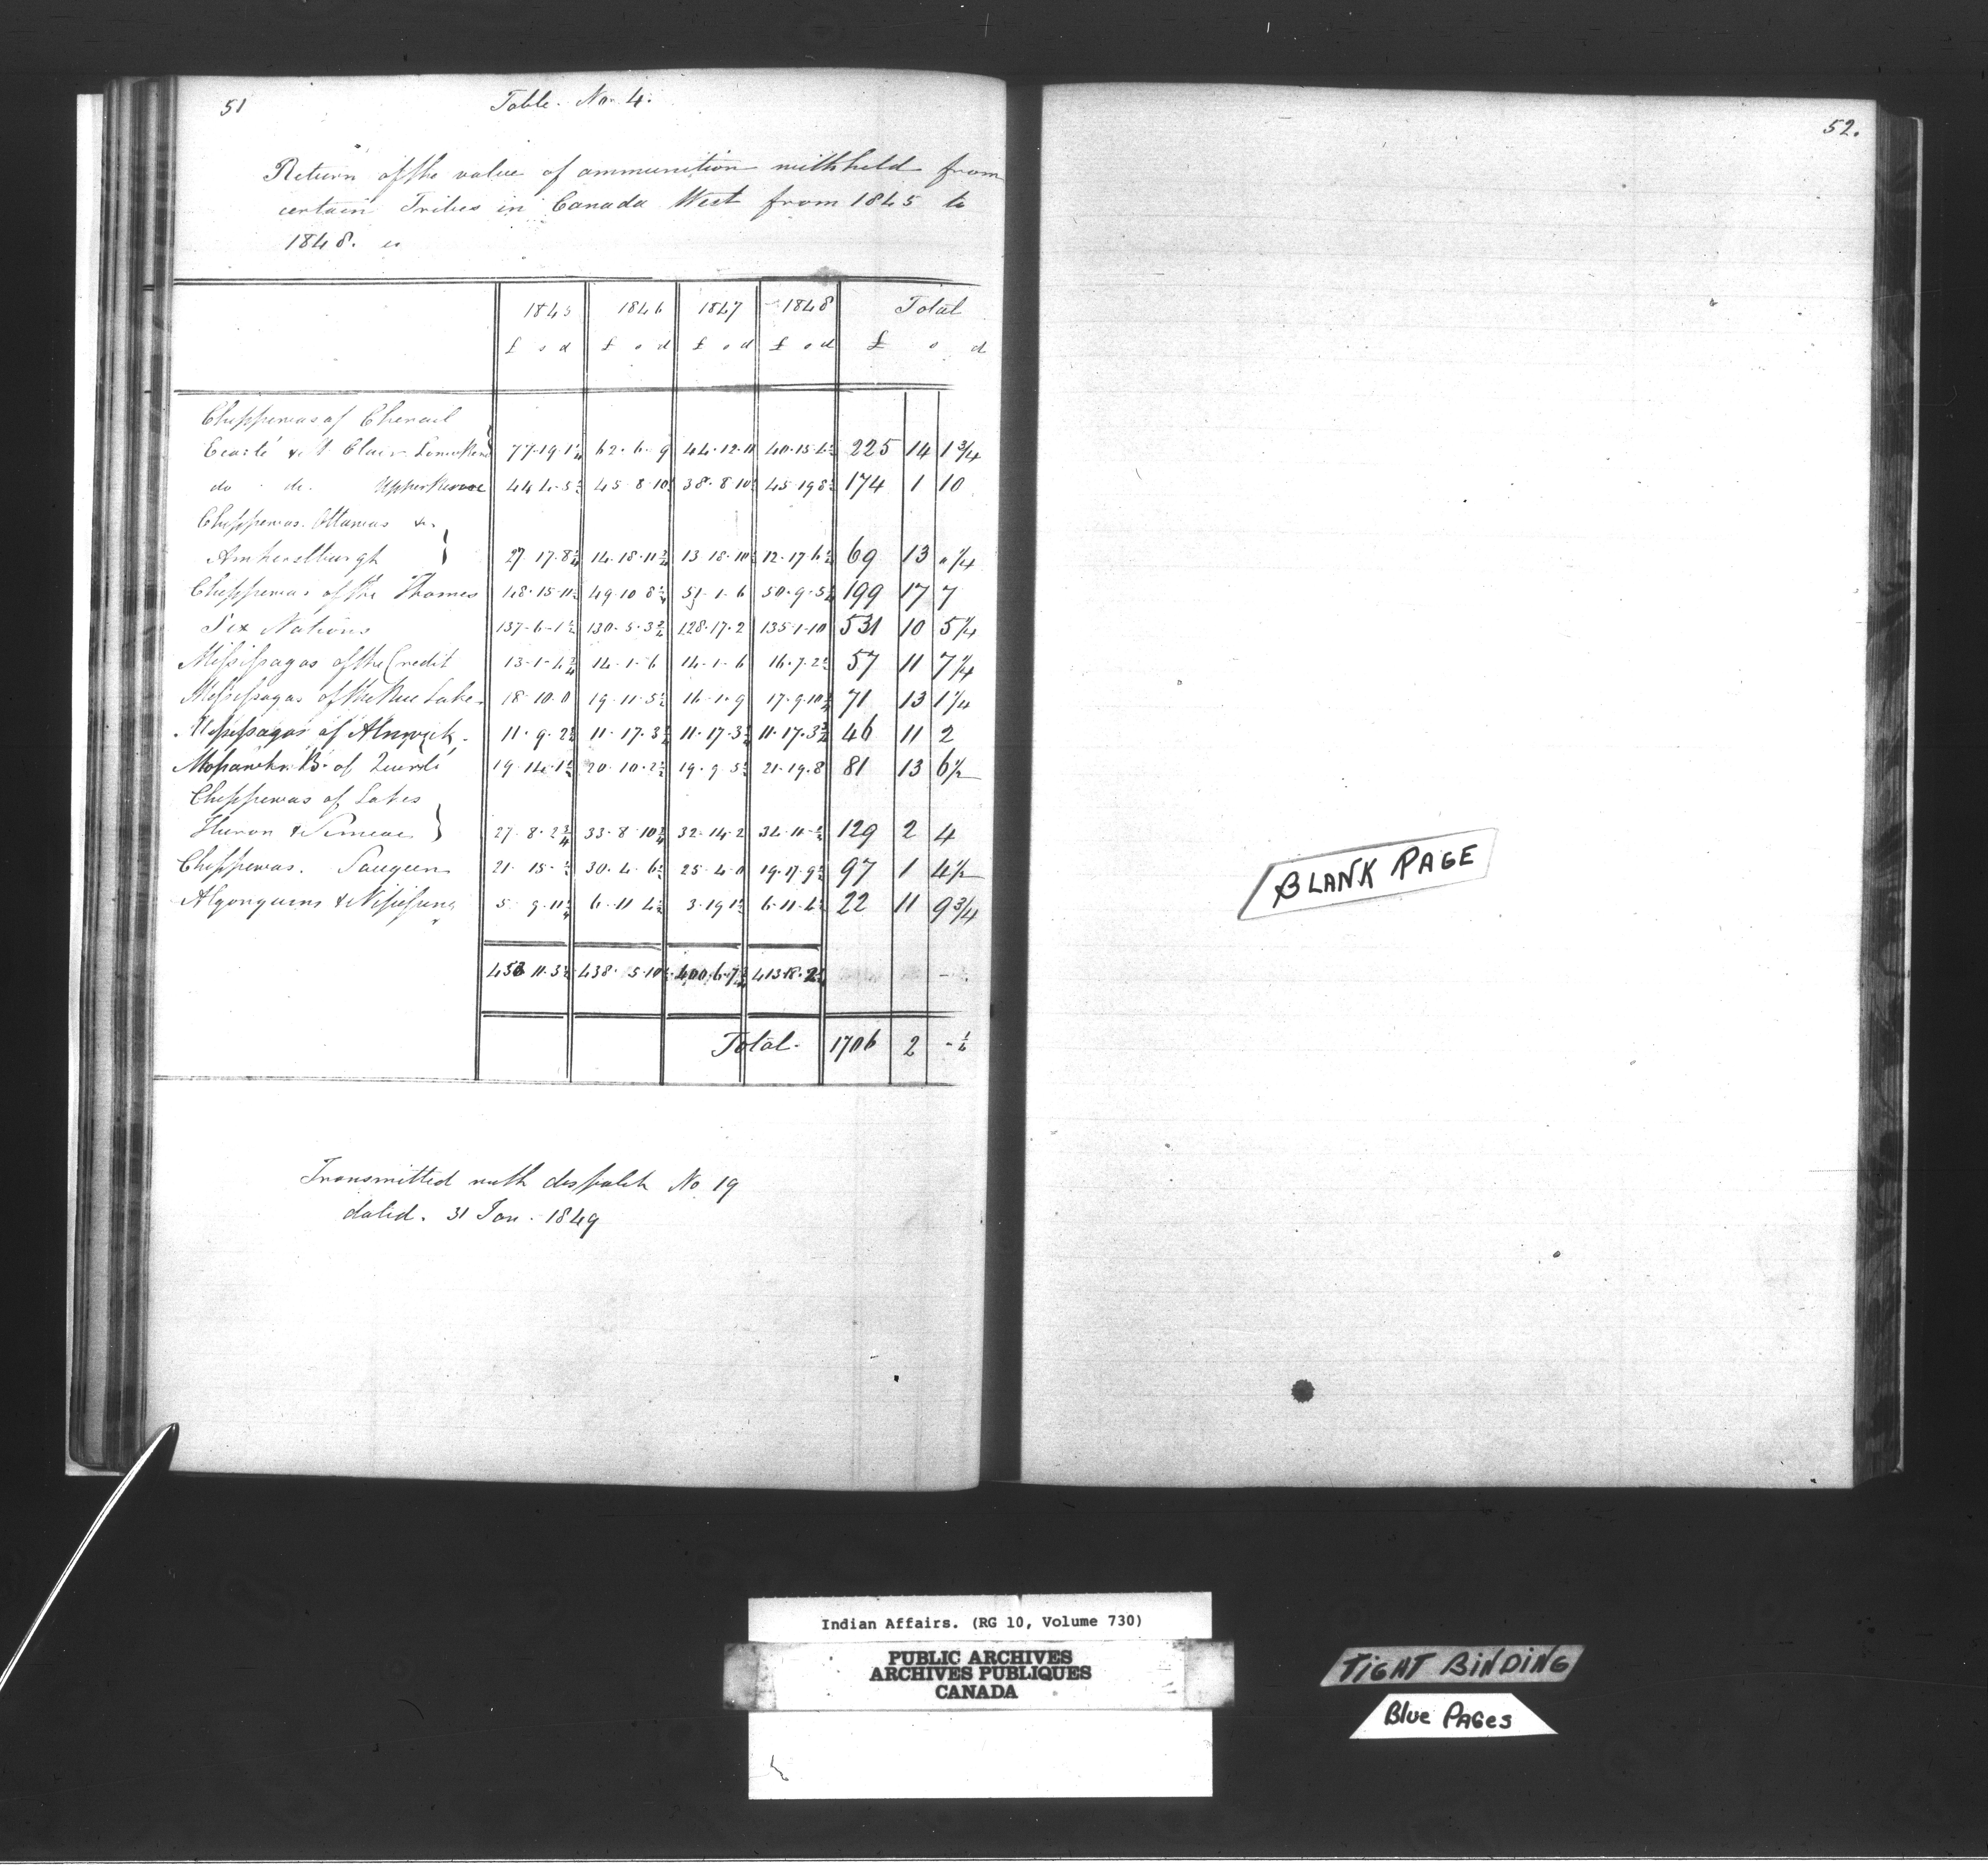 51
Table No. 4.
Return of the value of ammunition withheld from
certain Tribes in Canada West from 1845 to
1848.
1845 1846 1847 1848 Total
£ s d £ s d £ s d £ s d £ s d
Chippewas of Chenail
Ecarté & St Clair Lower 77-19-1 62-6-9 44-12-11 40-15- 225 14 1¾
do do Upper 44 4-5 45 8 10 38-8 10 45-19 8 174 1 10
Chippewas Ottawas &
Amherstburgh 27 17-8 14-18-11 13 18-10 12-17-6 69 13 " ¼
Chippewas of the Thames 48-15-11 49 10 8 51-1-6 50-9-5 199 17 7
Six Nations 137-6-1 130-5-3 128-17-2 135-1-10 531 10 5¼
Missisagas of the Credit 13-1-4 14-1-6 14-1-6 16-7-2 57 11 7¼
Missisagas of the Rice Lake 18-10-0 19-11-5 16-1-9 17-9-10 71 13 1¼
Missisagas of Alnwick 11-9-2 11-17-3 11-17-3 11-17-3 46 11 2
Mohawks B. of Quinté 19-14-1 20-10-2 19-9-5 21-19-8 81 13 6½
Chippewas of Lakes
Huron & Simcoe 27-8-2 33-8 10 32-14-2 34-11- 129 2 4
Chippewas. Saugeen 21-15- 30-4-6 25-4-0 19-17-9 97 1 4½
Algonquins & 5-9-11 6-11 4 3-19 1 6-11-4 22 11 9¾
453 11-3 438-5-10 400-6-7 413-18-2
Total- 1706 2
Transmitted with despatch No 19
dated. 31 Jan. 1849
52.
BLANK PAGE
Indian Affairs. (RG 10, Volume 730)
PUBLIC ARCHIVES
ARCHIVES PUBLIQUES
CANADA
TIGHT BINDING
Blue PAGes